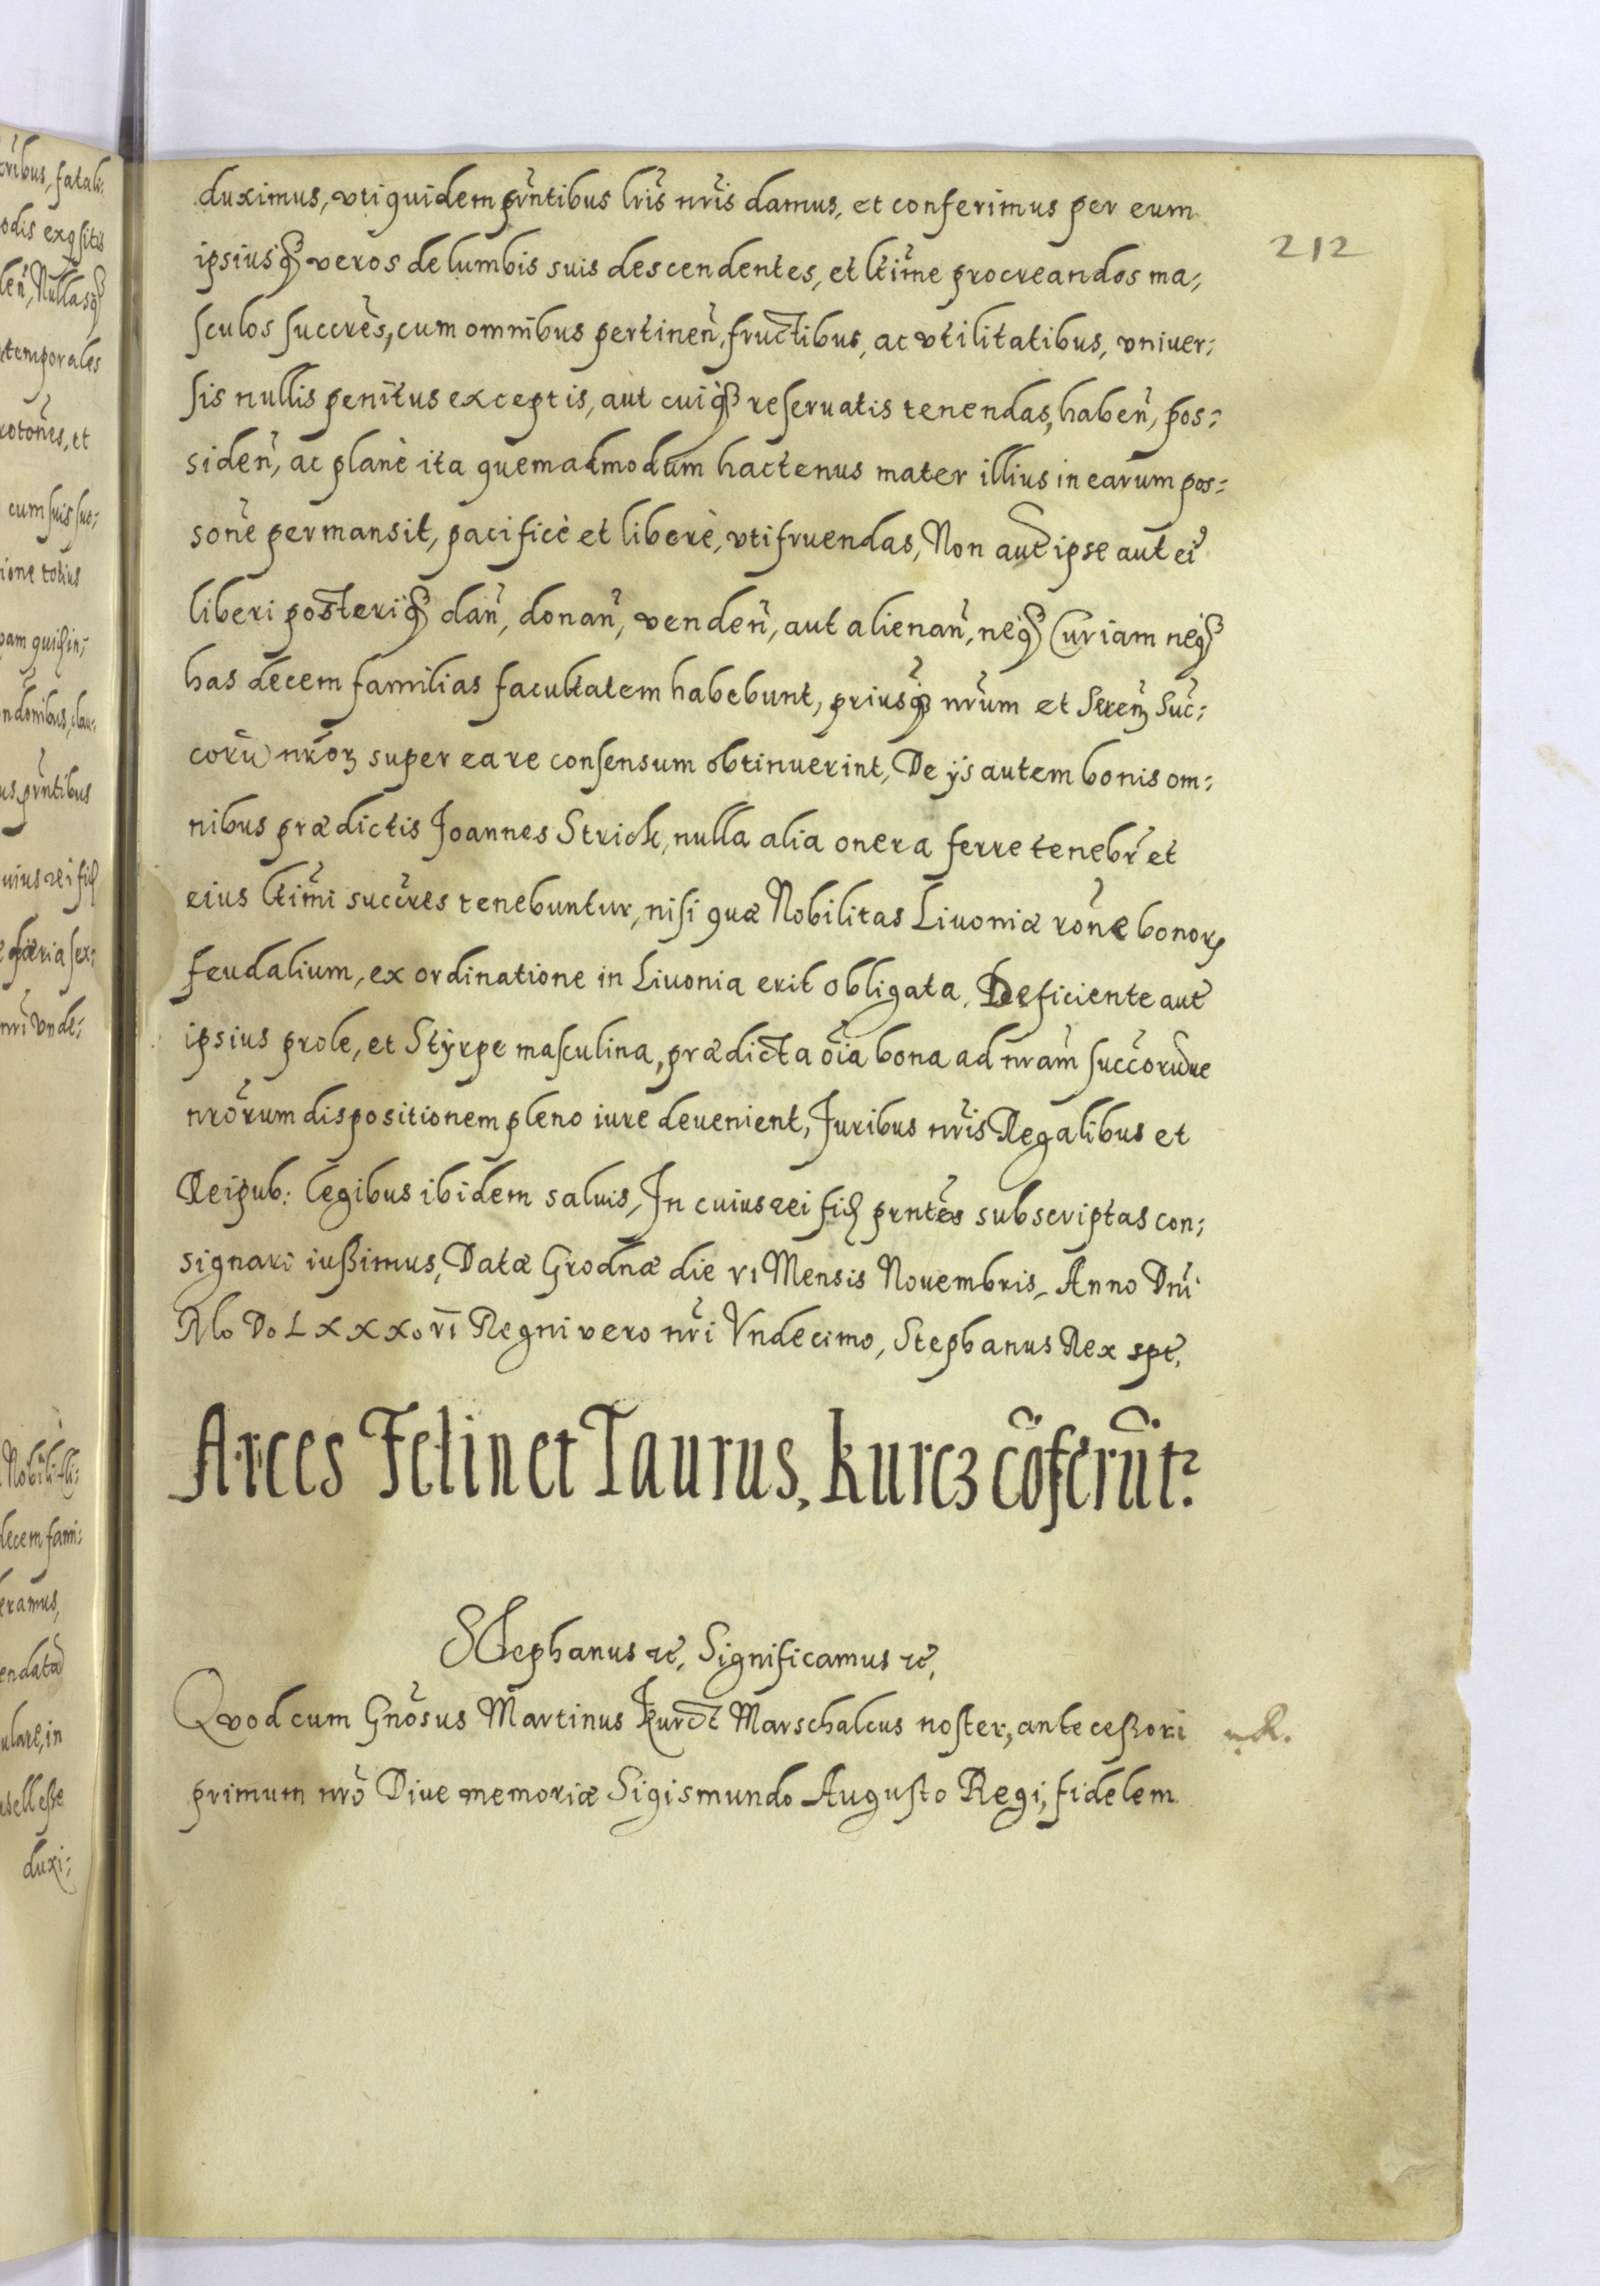 duximus, vti quidem pñtibus lris nris damus, et conferimus per eum
212
ipsiusq3 veros de lumbis suis descendentes, et ltime procreandos ma,
sculos succres, cum omnibus pertineñ, fructibus, ac vtilitatibus, vniuer,
sis nullis penitus exceptis, aut cuiq3 reseruatis tenendas, habeñ, pos,
sideñ, ac planè ita quemadmodum hactenus mater illius in earum pos,
sone permansit, pacificè et liberè, vtifruendas, Non aut ipse aut ei
liberi posteriq3 dañ, donañ, vendeñ, aut alienañ, neq3 Curiam neq3
has decem familias facultatem habebunt, priusq3 nrum et Sereñ Suc,
corũ nror3 super ea re consensum obtinuerint, De ijs autem bonis om,
nibus prædictis Joannes Strick, nulla alia onera ferre tenebr et
eius ltimi succres tenebuntur, nisi quæ Nobilitas Liuoniæ rone bonor3
feudalium, ex ordinatione in Liuonia erit obligata. Deficiente aut
ipsius prole, et Styrpe masculina, prædicta oia bona ad nram succorũue
nrorum dispositionem pleno iure deuenient, Juribus nris Regalibus et
Reipub: legibus ibidem saluis, In cuius rei fiđ prntes subscriptas con,
signari iußimus, Datæ Grodnæ die vi Mensis Nouembris, Anno Dni
Mo Do LXXXo vi Regni vero nri Vndecimo, Stephanus Rex spt,
Arces Felin et Taurus, kurcz cõferũt2
Stephanus etc, Significamus etc,
Quod cum Gnosus Martinus kurcz Marschalcus noster, anteceßori
primum nro Diue memoriæ Sigismundo Augusto Regi, fidelem